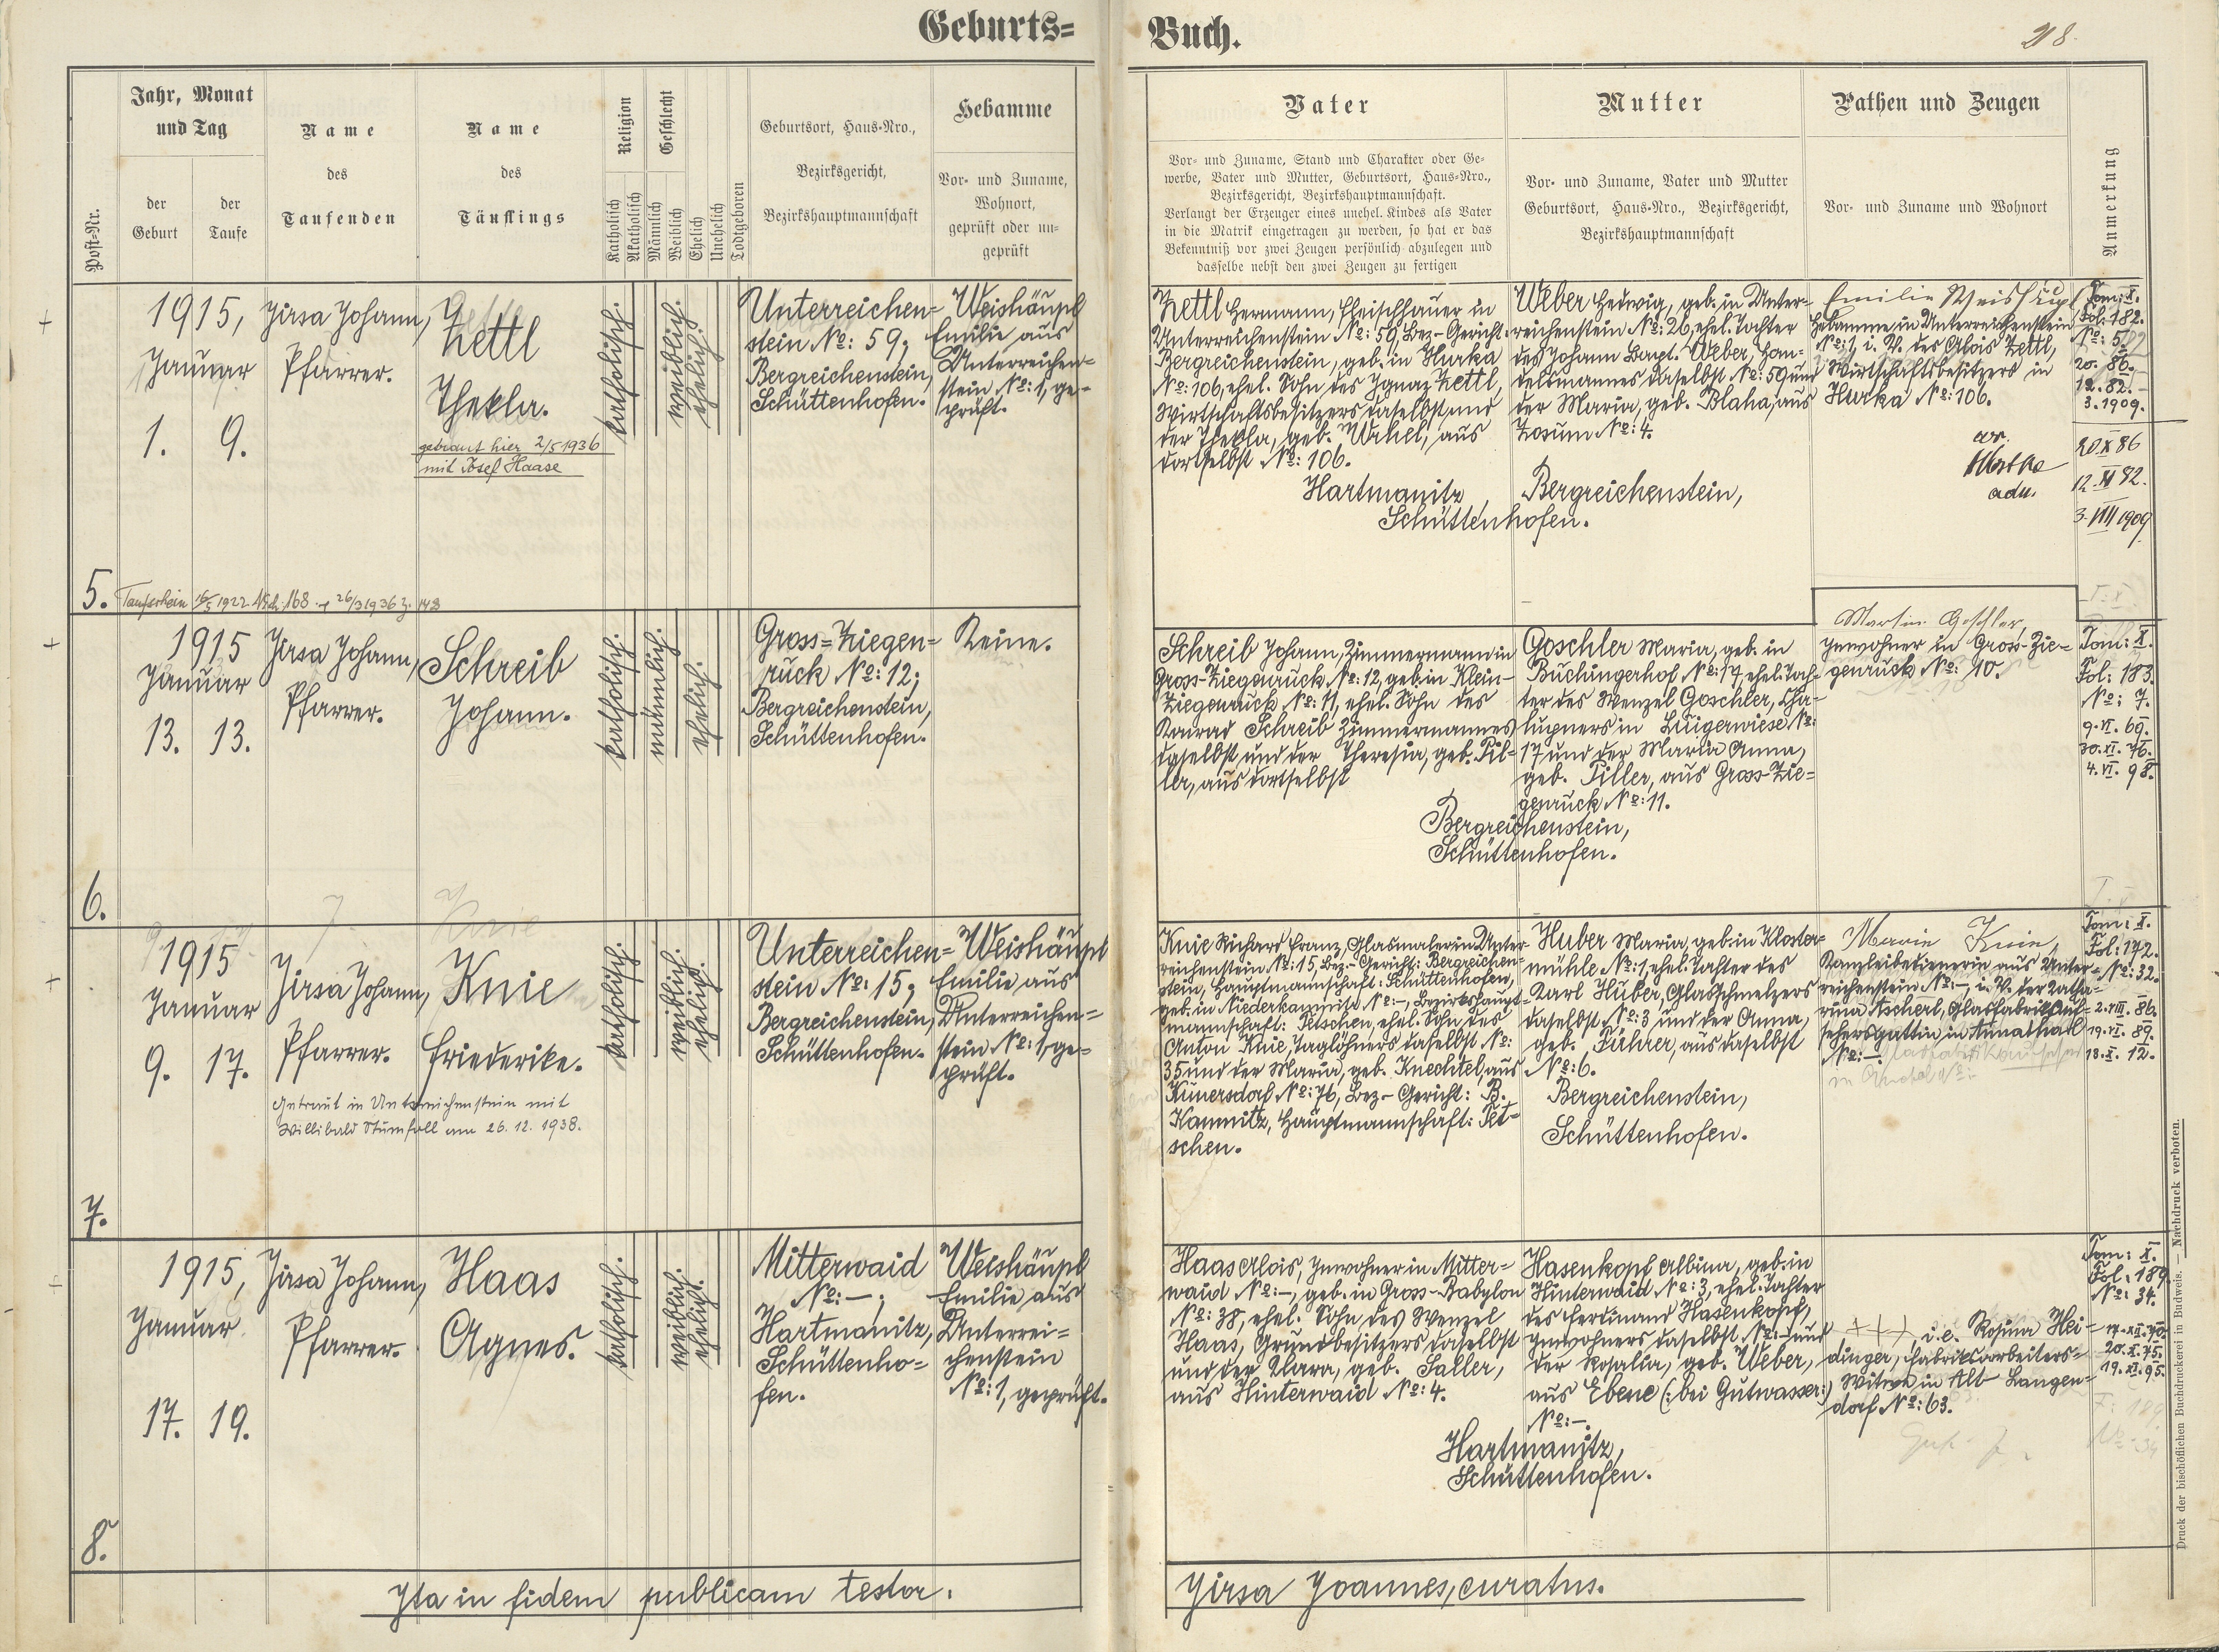 Geburts=
Buch.
218.
Post-Nr.
Jahr, Monat
und Tag
der
Geburt
der
Taufe
Name
des
Taufenden
Name
des
Täuflings
Religion
Katholisch
Akatholisch
Geschlecht
Männlich
Weiblich
Ehelich
Unehelich
Todtgeboren
Geburtsort, Haus-Nro.,
Bezirksgericht,
Bezirkshauptmannschaft
Hebamme
Vor- und Zuname,
Wohnort,
geprüft oder un-
geprüft
Vater
Vor- und Zuname, Stand und Charakter oder Ge-
werbe, Vater und Mutter, Geburtsort, Haus-Nro.,
Bezirksgericht, Bezirkshauptmannschaft.
Verlangt der Erzeuger eines unehel. Kindes als Vater
in die Matrik eingetragen zu werden, so hat er das
Bekenntniß vor zwei Zeugen persönlich abzulegen und
dasselbe nebst den zwei Zeugen zu fertigen
Mutter
Vor- und Zuname, Vater und Mutter
Geburtsort, Haus-Nro., Bezirksgericht,
Bezirkshauptmannschaft
Pathen und Zeugen
Vor- und Zuname und Wohnort
Anmerkung
5.
1915,
Januar
1. 9.
Jirsa Johann,
Pfarrer.
Zettl
Thekla.
getraut hier 2/5 1936
mit Josef Haase
Taufschein 16/5 1922 168 26/3 1936 Z. 148
katholisch.
weiblich.
ehelich.
Unterreichen=
stein No: 59;
Bergreichenstein,
Schüttenhofen.
Weishäupl
Emilie aus
Unterreichen=
stein No: 1, ge-
prüft.
Zettl Hermann, Fleischhauer in
Unterreichenstein No: 59, Bez-Gericht:
Bergreichenstein, geb. in Hurka
No: 106, ehel. Sohn des Ignaz Zettl,
Wirtschaftsbesitzers daselbst und
der Thekla, geb. aus
dortselbst No: 106.
Hartmanitz,
Schüttenhofen.
Weber Hedwig, geb. in Unter-
reichenstein No: 26, ehel. Tochter
des Johann Bapt. Weber, Han-
delsmannes daselbst No: 59 und
der Maria, geb. Blaha, aus
Zosum No: 4.
Bergreichenstein,
Emilie Weishäupl
Hebamme in Unterreichenstein
No: 1, i. V. des Alois Zettl,
Wirtschaftsbesitzers in
Hurka No: 106.
Tom: X.
Fol: 182.
No: 5
20. 86.
12. 82.
3. 1909.
20 X 86
12. XI 82.
3. VIII 1909
6.
1915
Januar
13. 13.
Jirsa Johann,
Pfarrer.
Schreib
Johann.
katholisch.
männlich.
ehelich.
Gross=Ziegen=
ruck No: 12;
Bergreichenstein,
Schüttenhofen.
Keine.
Schreib Johann, Zimmermann in
Gross-Ziegenruck No: 12, geb. in Klein-
Ziegenruck No: 11, ehel. Sohn des
Konrad Schreib Zimmermannes
daselbst und der Theresia, geb. Pil-
ler, aus dortselbst
Bergreichenstein,
Schüttenhofen.
Goschler Maria, geb. in
Buchingerhof No: 17, ehel. Toch-
ter des Wenzel Goschler, Cha-
lupners in Luigerwiese No:
17 und der Maria Anna,
geb. Piller, aus Gross-Zie=
genruck No: 11.
Martin Goschler,
Inwohner in Gross-Zie-
genruck No: 10.
Tom: X.
Fol: 183.
No: 7.
9. VI. 69.
30. XI. 76.
4. VI. 98.
7.
1915
Januar
9. 17.
Jirsa Johann,
Pfarrer.
Knie
Friederike.
Getraut in Unterreichenstein mit
Willibald Stumfoll am 26. 12. 1938.
katholisch.
weiblich.
ehelich.
Unterreichen=
stein No: 15;
Bergreichenstein,
Schüttenhofen.
Weishäupl
Emilie aus
Unterreichen=
stein No: 1, ge-
prüft.
Knie Richard Franz, Glasmaler in Unter-
reichenstein No: 15, Bez.-Gericht: Bergreichen-
stein, Hauptmannschaft: Schüttenhofen,
geb. in Niederkamnitz No: –, Bezirkshaupt-
mannschaft: Tetschen, ehel. Sohn des
Anton Knie, Taglöhners daselbst No:
35 und der Maria, geb. Knechtel, aus
Kunersdorf No: 76, Bez-Gericht: B.
Kamnitz, Hauptmannschaft: Tet-
schen.
Huber Maria, geb. in Kloster=
mühle No: 1, ehel. Tochter des
Karl Huber, Glasschmelzers
daselbst No: 3 und der Anna,
geb. Führer, aus daselbst
No: 6.
Bergreichenstein,
Schüttenhofen.
Marie Knie,
Kanzleibedienerin aus Unter-
reichenstein No: –, i. V. der Katha-
rina Ascherl, Glasfabriksauf-
sehersgattin in Annathal
No: –.
Tom: X.
Fol: 172.
No: 32.
2. VIII. 86.
19. VI. 89.
18. X. 12.
8.
1915,
Januar
17. 19.
Jirsa Johann,
Pfarrer.
Haas
Agnes.
katholisch.
weiblich.
ehelich.
Mitterwaid
No: –;
Hartmanitz,
Schüttenho=
fen.
Weishäupl
Emilie aus
Unterrei=
chenstein
No: 1, geprüft.
Haas Alois, Inwohner in Mitter=
waid No: –, geb. in Gross-Babylon
No: 38, ehel. Sohn des Wenzel
Haas, Grundbesitzers daselbst
und der Klara, geb. Saller,
aus Hinterwaid No: 4.
Hartmanitz,
Schüttenhofen.
Hasenkopf Albina, geb. in
Hinterwaid No: 3, ehel. Tochter
des Ferdinand Hasenkopf,
Inwohners daselbst No: – und
der Rosalia, geb. Weber,
aus Ebene (: bei Gutwasser:)
No: –.
+++, i. e. Rosina Hei-
dinger, Fabriksarbeiters=
Witwe in Alt-Langen-
dorf No: 63.
Tom: X.
Fol: 189.
No: 34.
17. XII. 70.
20. X. 75.
19. XI. 95.
Ita in fidem publicam testor.
Jirsa Joannes, curatus.
Druck der bischöflichen Buchdruckerei in Budweis. — Nachdruck verboten.